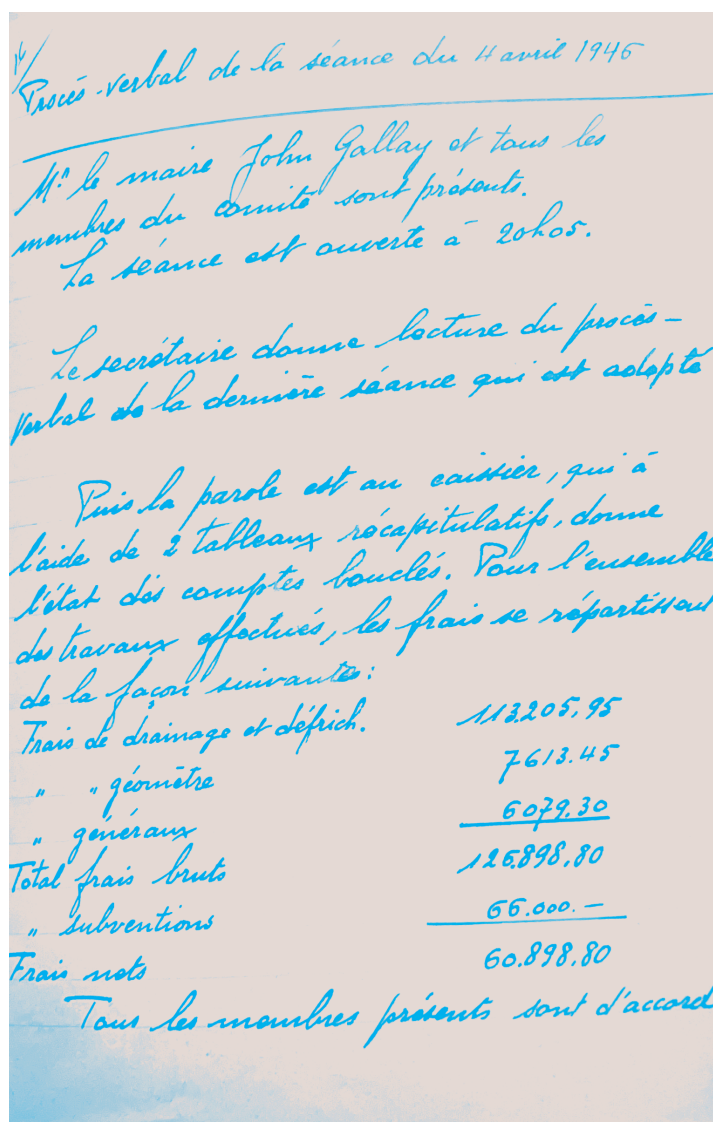 14/
Procès-verbal de la séance du 4 avril 1946
Mr. le maire John Gallay et tous les
membres du comité sont présents.
La séance est ouverte à 20h05.
Le secrétaire donne lecture du procès-
verbal de la dernière séance qui est adopté
Puis la parole est au caissier, qui à
l'aide de 2 tableaux récapitulatifs, donne
l'état des comptes bouclés. Pour l'ensemble
des travaux effectués, les frais se répartissent
de la façon suivantes:
Frais de drainage et défrich. 113.205,95
" " géomètre 7613.45
" généraux 6079.30
Total frais bruts 126.898,80
" subventions 66.000.–
Frais nets 60.898,80
Tous les membres présents sont d'accord